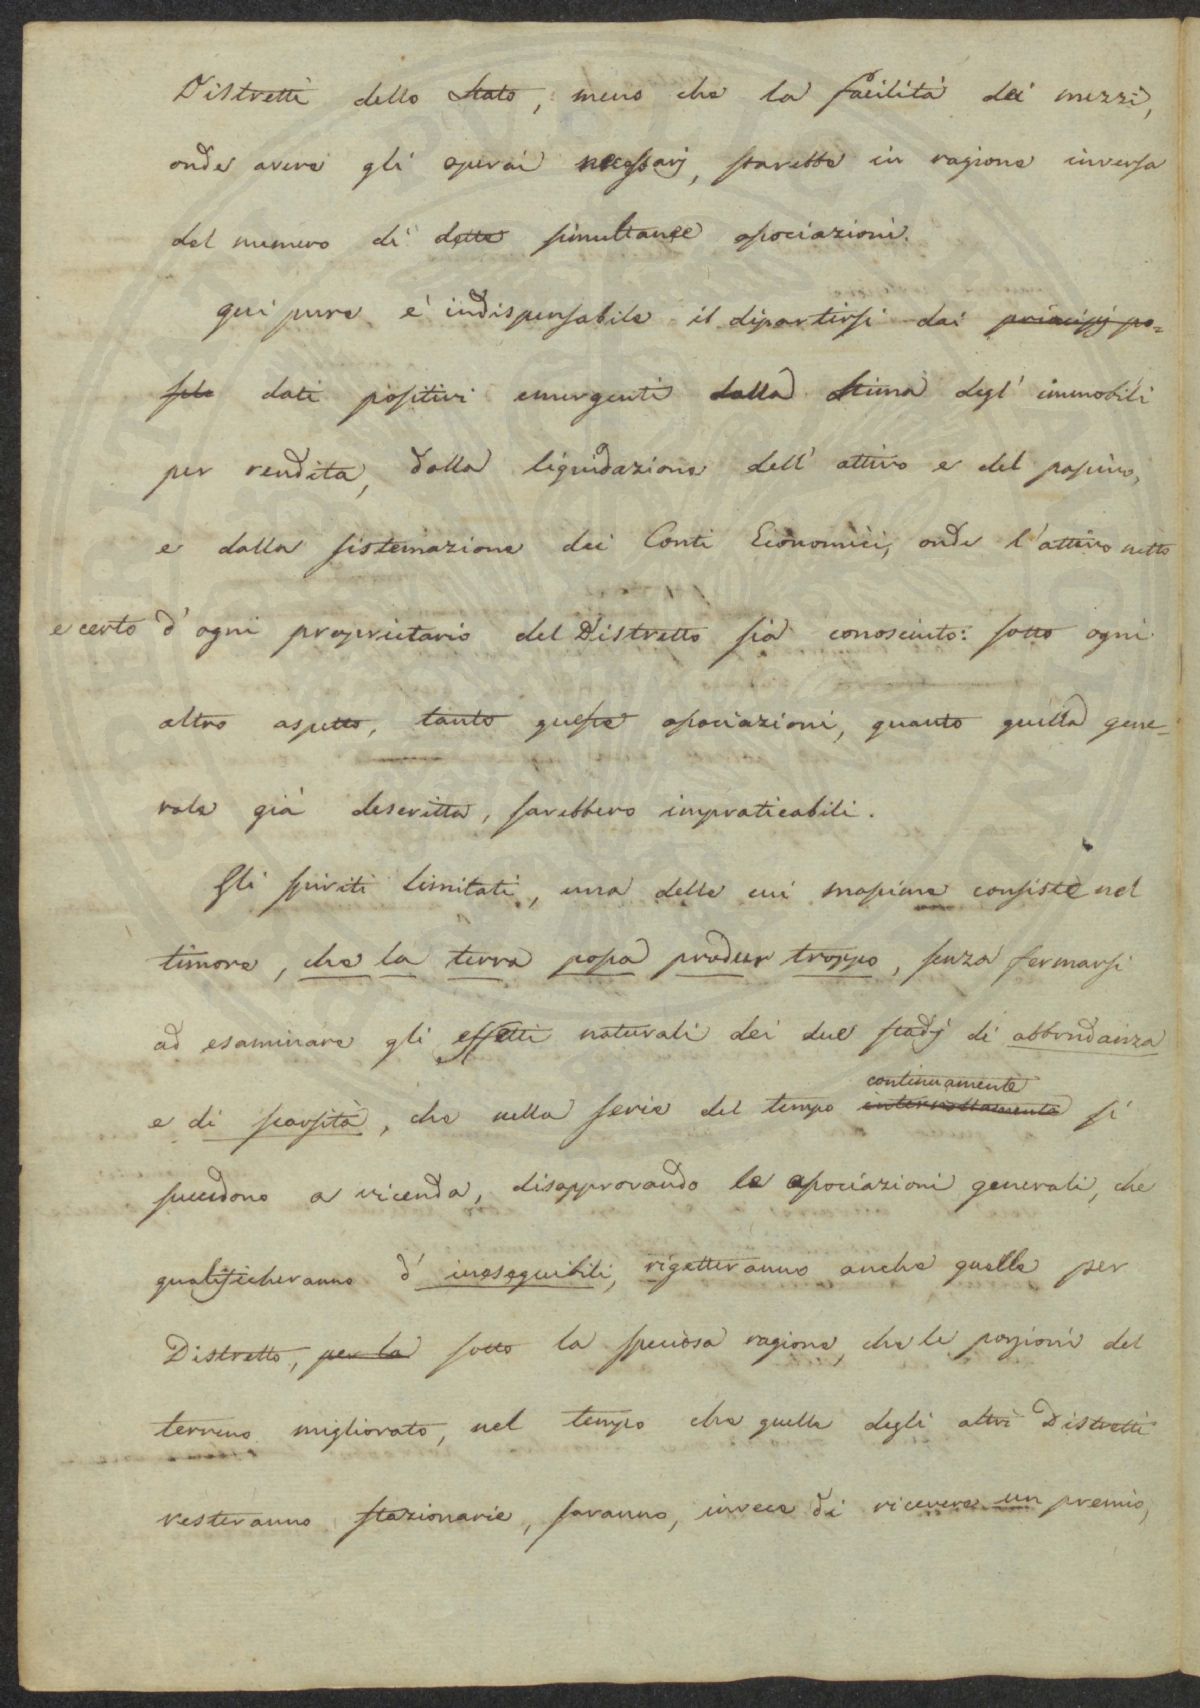 Distretti dello Stato, meno che la facilità dei mezzi,
onde avere gli operai necessarj, starebbe in ragione inversa
del numero di dette simultanee associazioni.
Qui pure è indispensabile il dipartirsi dai principj po-
sti dati positivi emergenti dalla stima degl' immobili
per rendita, dalla liquidazione dell' attivo e del passivo,
e dalla sistemazione dei Conti Economici, onde l'attivo netto
e certo d' ogni proprietario del Distretto sia conosciuto: sotto ogni
altro aspetto, tanto queste associazioni, quanto quella gene-
rale già descritta, sarebbero impraticabili.
Gli spiriti limitati, una delle cui massime consiste nel
timore, che la terra possa produr troppo, senza fermarsi
ad esaminare gli effetti naturali dei due stadj di abbondanza
continuamente
e di scarsità, che nella serie del tempo si
succedono a vicenda, disapprovando le associazioni generali, che
qualificheranno d' ineseguibili, rigetteranno anche quelle per
Distretto, per la sotto la speciosa ragione, che le porzioni del
terreno migliorato, nel tempo che quelle degli altri Distretti
resteranno stazionarie, saranno, invece di ricevere un premio,